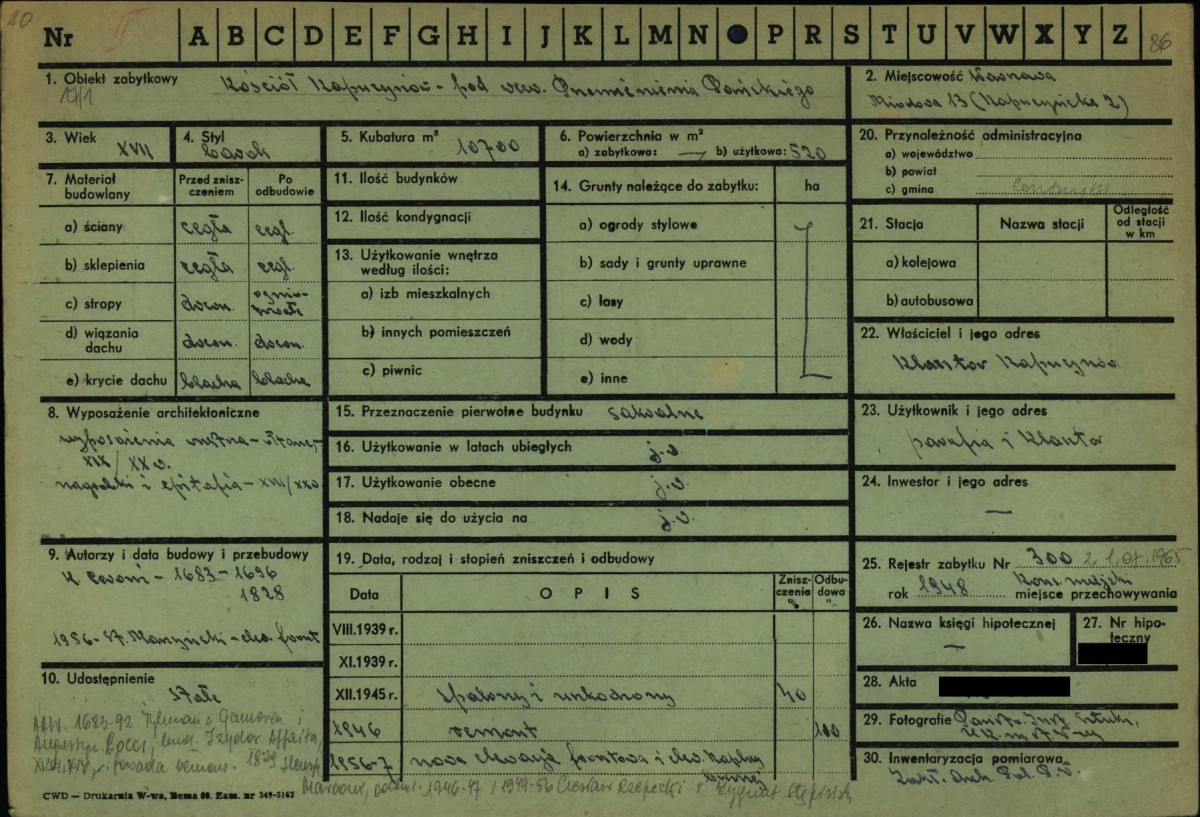 10
Nr II A B C D E F G H I J K L M N P R S T U V W X Y Z 86
1. Obiekt zabytkowy Kościół Kapucynów - pod wezw. Przemienienia Pańskiego
17/1
2. Miejscowość Warszawa
Miodowa 13 (Kapucyńska 2)
3. Wiek XVII
4. Styl barok
5. Kubatura m³ 10700
6. Powierzchnia w m²
a) zabytkowa: — b) użytkowa: 520
7. Materiał budowlany
Przed zniszczeniem
Po odbudowie
a) ściany cegła cegł.
b) sklepienia cegła cegł.
c) stropy drewn. ognio-
trwałe
d) wiązania dachu drewn. drewn.
e) krycie dachu blacha blacha
8. Wyposażenie architektoniczne
wyposażenia wnętrza -
XIX/XX w.
nagrobki i epitafia - XVII/XX w
9. Autorzy i data budowy i przebudowy
K. Ceroni - 1683 - 1696
1828
1956 - Marzyński - elew. front
10. Udostępnienie
stałe
11. Ilość budynków
12. Ilość kondygnacji
13. Użytkowanie wnętrza według ilości:
a) izb mieszkalnych
b) innych pomieszczeń
c) piwnic
14. Grunty należące do zabytku: ha
a) ogrody stylowe
b) sady i grunty uprawne
c) lasy
d) wody
e) inne
15. Przeznaczenie pierwotne budynku sakralne
16. Użytkowanie w latach ubiegłych j.w.
17. Użytkowanie obecne j.w.
18. Nadaje się do użycia na j.w.
19. Data, rodzaj i stopień zniszczeń i odbudowy
Data OPIS Zniszczenia % Odbudowa %
VIII.1939 r.
XI.1939 r.
XII.1945 r. spalony i uszkodzony 40
1946 remont 100
1956-7 nowa elewacja frontowa i elew. kaplicy
bocznej
20. Przynależność administracyjna
a) województwo
b) powiat
c) gmina
21. Stacja Nazwa stacji Odległość od stacji w km
a) kolejowa
b) autobusowa
22. Właściciel i jego adres
Klasztor Kapucynów
23. Użytkownik i jego adres
parafia i klasztor
24. Inwestor i jego adres
—
25. Rejestr zabytku Nr 300 z 1.07.1965
rok 1948 Kons. miejski
miejsce przechowywania
26. Nazwa księgi hipotecznej
—
27. Nr hipoteczny
28. Akta
29. Fotografie Państw. Inst. Sztuki,
30. Inwentaryzacja pomiarowa
Zakł. Arch. Pol. P.W.
1683-92 Tylman z Gameren i
Augustyn Locci, bud. Izydor Affaita,
XVIII, XIX, fasada remont. 1829 Henryk
Marconi, odbud. 1946-47 i 1949-56 Czesław Rzepecki Zygmunt Stępiński
CWD — Drukarnia W-wa, Bema 60. Zam. nr 349-5162